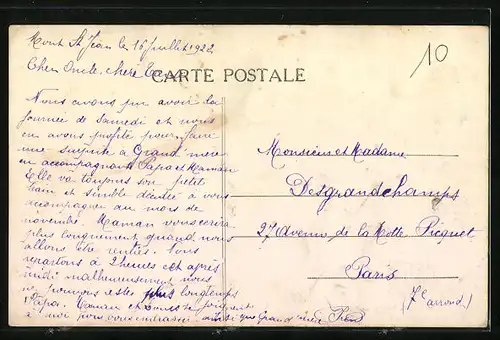 Mont St Jean le 16 Juillet 1922
10
Cher Oncle, chère Tante
CARTE POSTALE
Nous avons pu avoir la
journée de Samedi et nous
en avons profité pour faire
une surprise à Grand'mère
en accompagnant Papa et Maman
Elle va toujours son petit
train et semble décidée à vous
accompagner au mois de
novembre. Maman vous écrira
plus longuement quand nous
allons être rentrés. Nous
repartons à 2 heures et après
midi malheureusement nous
ne pouvons rester plus longtemps
Papa, Maman et
à moi pour vous embrasser ainsi que Grand'mère
Monsieur et Madame
Desgrandchamps
27 Avenue de la Motte Picquet
Paris
(7e arrond)